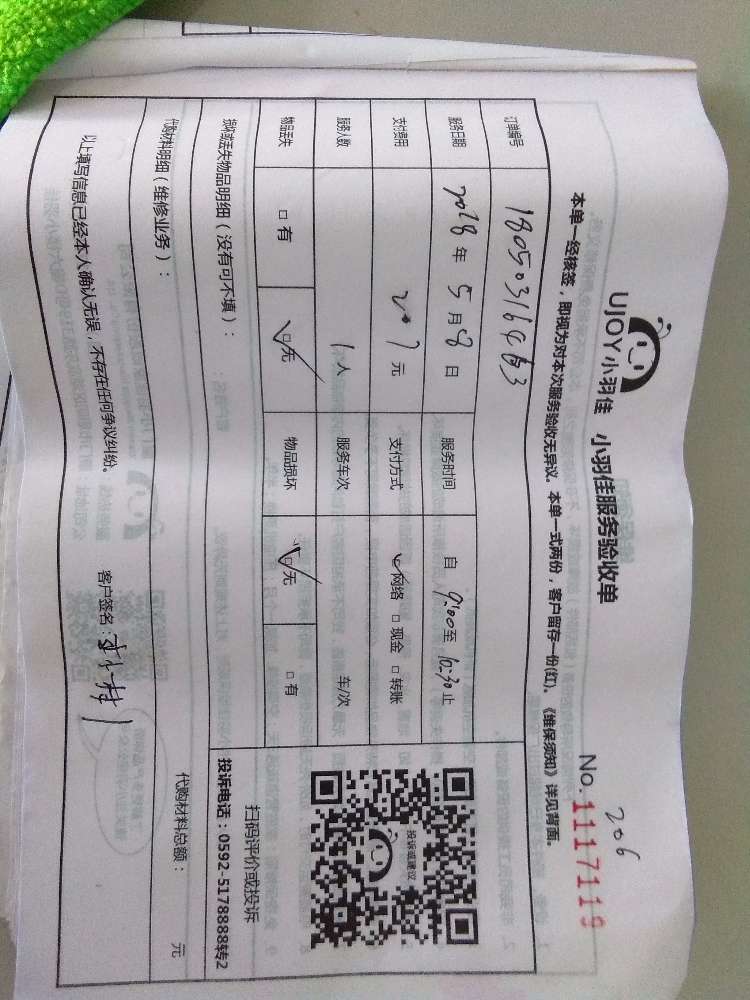 206
UJOY小羽佳 小羽佳服务验收单 No.1117119
本单一经核签，即视为对本次服务验收无异议。本单一式两份，客户留存一份(红)。《维保须知》详见背面。
订单编号
服务日期 2018 年 5 月 8 日 服务时间 自 9:00 至 10:30 止
支付费用 207 元 支付方式 网络 □ 现金 □ 转账
服务人数 1 人 服务车次 车/次
物品丢失 □ 有 □ 无 物品损坏 □ 无 □ 有
损坏或丢失物品明细（没有可不填）：
代购材料明细（维修业务）： 代购材料总额： 元
以上填写信息已经本人确认无误，不存在任何争议纠纷。 客户签名：
投诉或建议
扫码评价或投诉
投诉电话：0592-5178888转2